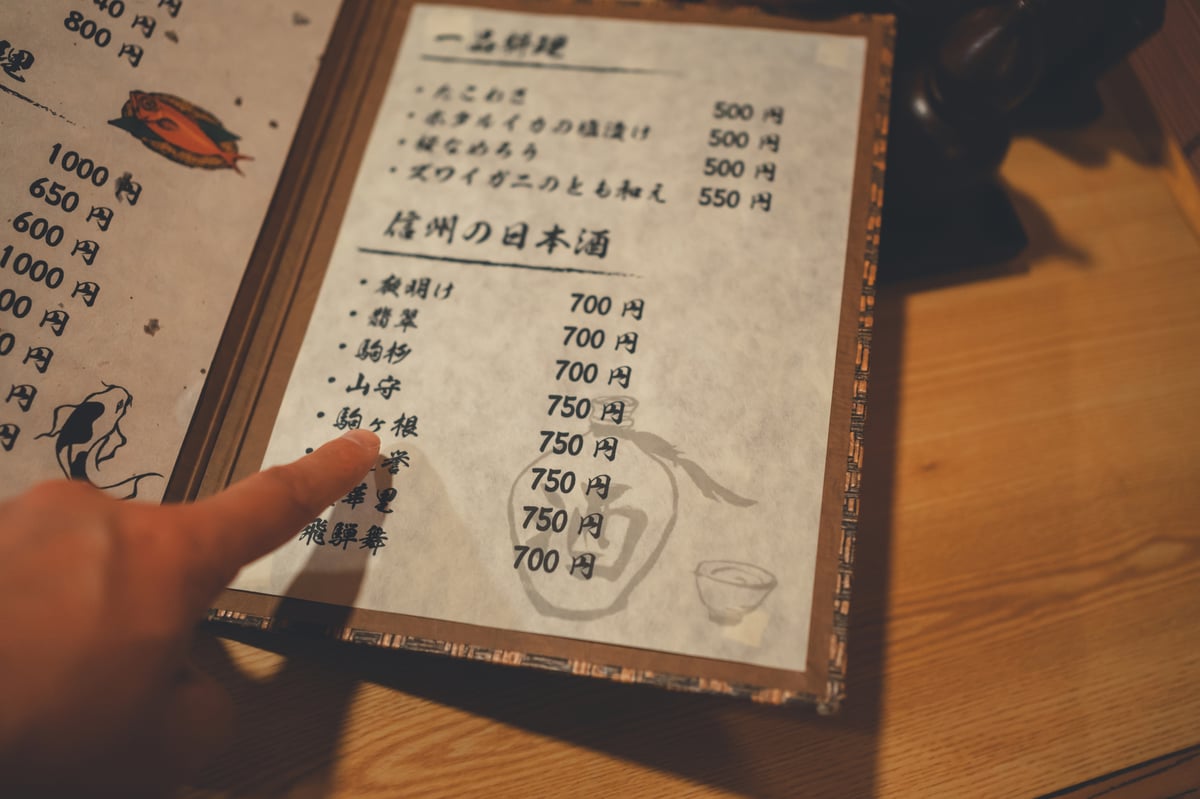 40 円
800 円
理
1000 円
650 円
600 円
1000 円
00 円
0 円
円
円
一品料理
・たこわさ 500 円
・ホタルイカの塩漬け 500 円
・縦なめろう 500 円
・ズワイガニのとも和え 550 円
信州の日本酒
・夜明け 700 円
・翡翠 700 円
・駒極 700 円
・山守 750 円
・駒ヶ根 750 円
・誉 750 円
華里 750 円
飛騨舞 700 円
酒